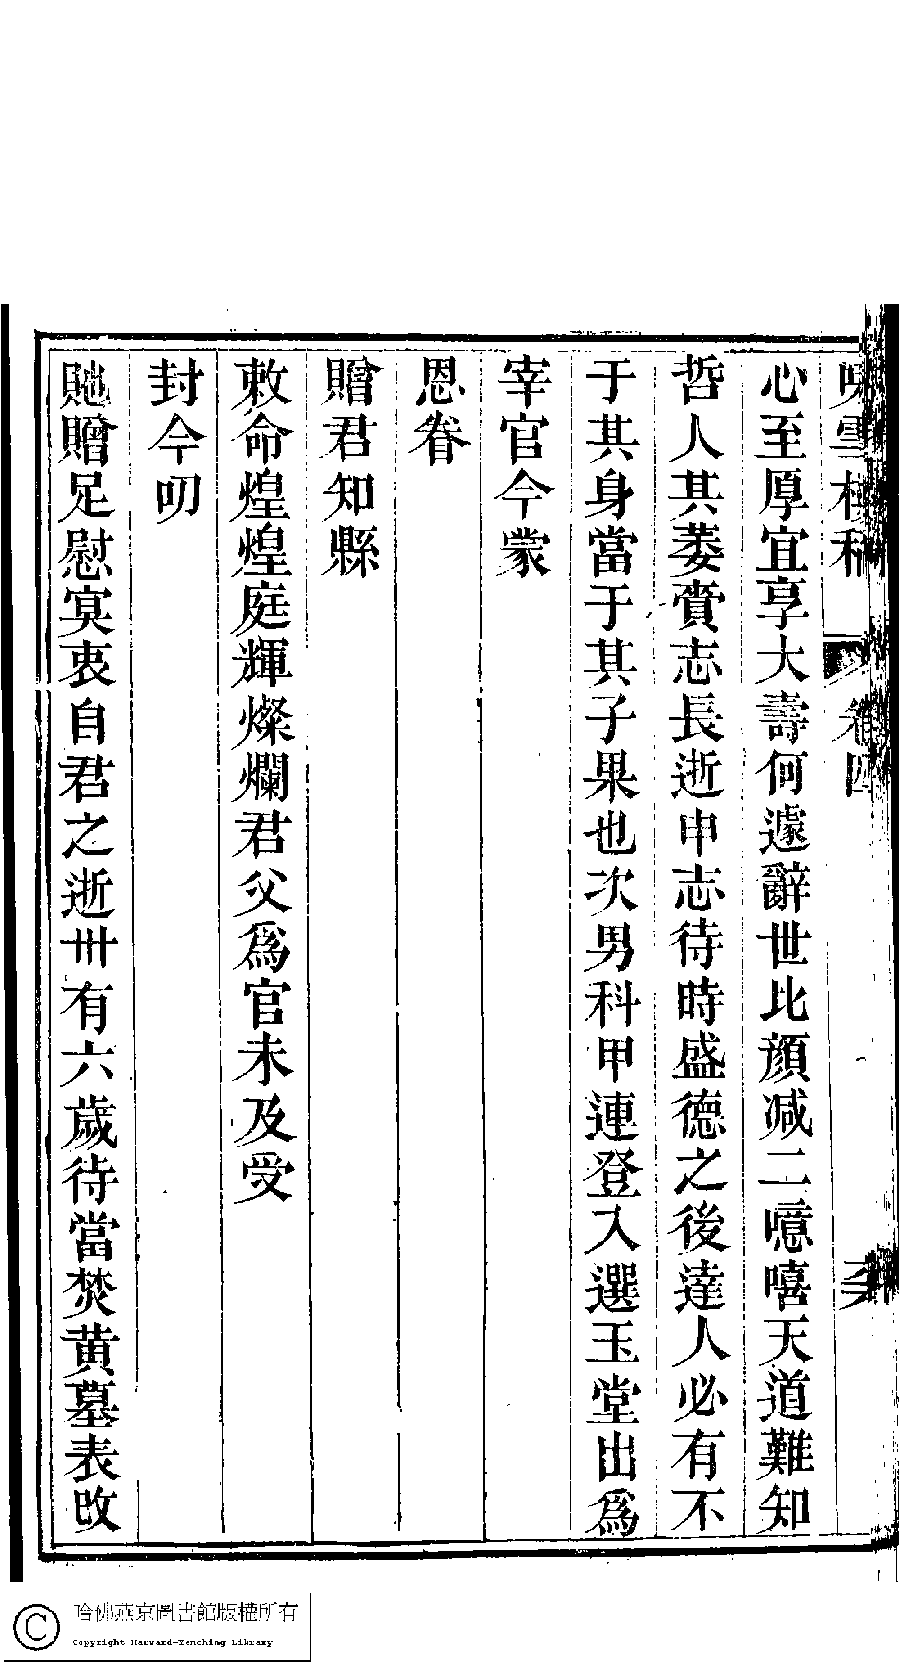 雪 卷四
心至厚宜享大壽何遽辭世比顏減二噫嘻天道難知
哲人其萎賫志長逝申志待時盛德之後達人必有不
于其身當于其子果也次男科甲連登入選玉堂出爲
宰官今蒙
恩眷
贈君知縣
敕命煌煌庭輝燦爛君父爲官未及受
封今叨
貤贈足慰寞衷自君之逝卅有六歲待當焚黄墓表改
哈佛燕京圖書館版權所有
Copyright Harvard-Yenching Library